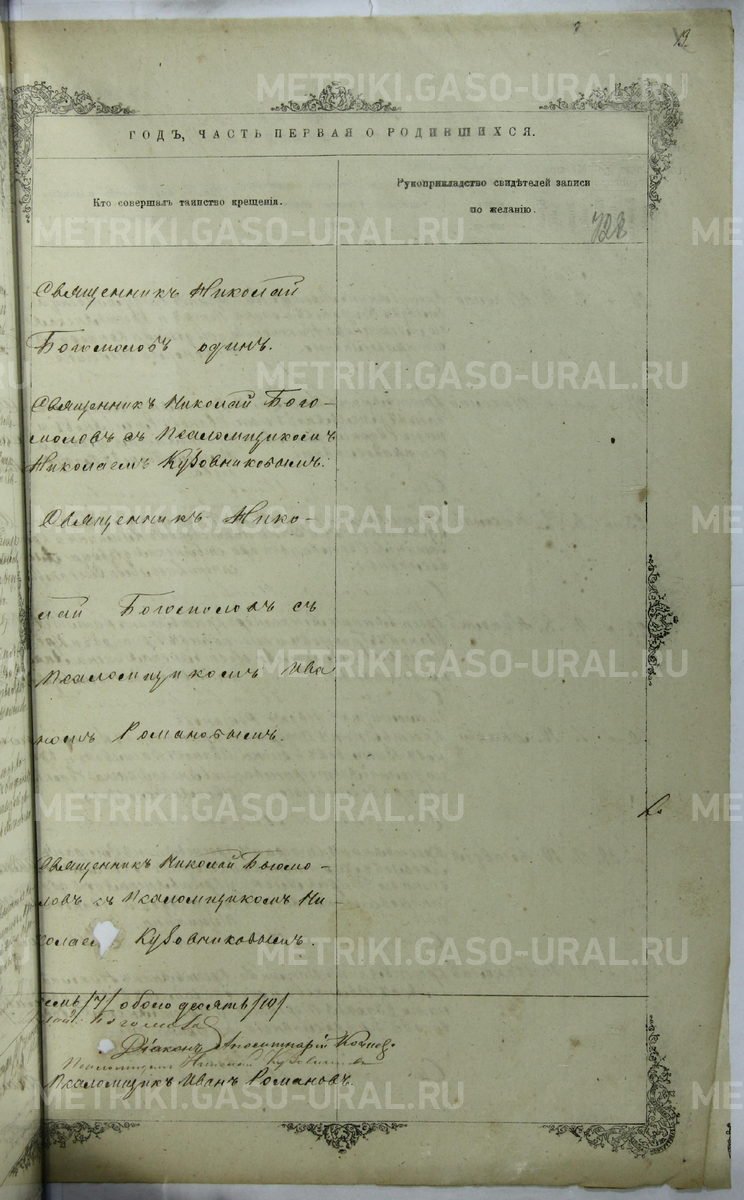 13
METRIKI.GASO-URAL.RU
ГОДЪ, ЧАСТЬ ПЕРВАЯ О РОДИВШИХСЯ.
Кто совершалъ таинство крещенія.
Рукоприкладство свидѣтелей записи
по желанію.
722
Священникъ Николай
Богомоловъ одинъ.
Священникъ Николай Бого-
моловъ съ Псаломщикомъ
Николаемъ Кузовниковымъ.
Священникъ Нико-
лай Богомоловъ съ
Псаломщикомъ Ива
номъ Романовымъ.
Священникъ Николай Богомо-
ловъ съ Псаломщикомъ Ни-
колаем Кузовниковымъ.
семь /7/ обоего десять /10/
Діаконъ
Псаломщикъ Николай Кузовников
Псаломщикъ Иванъ Романовъ.